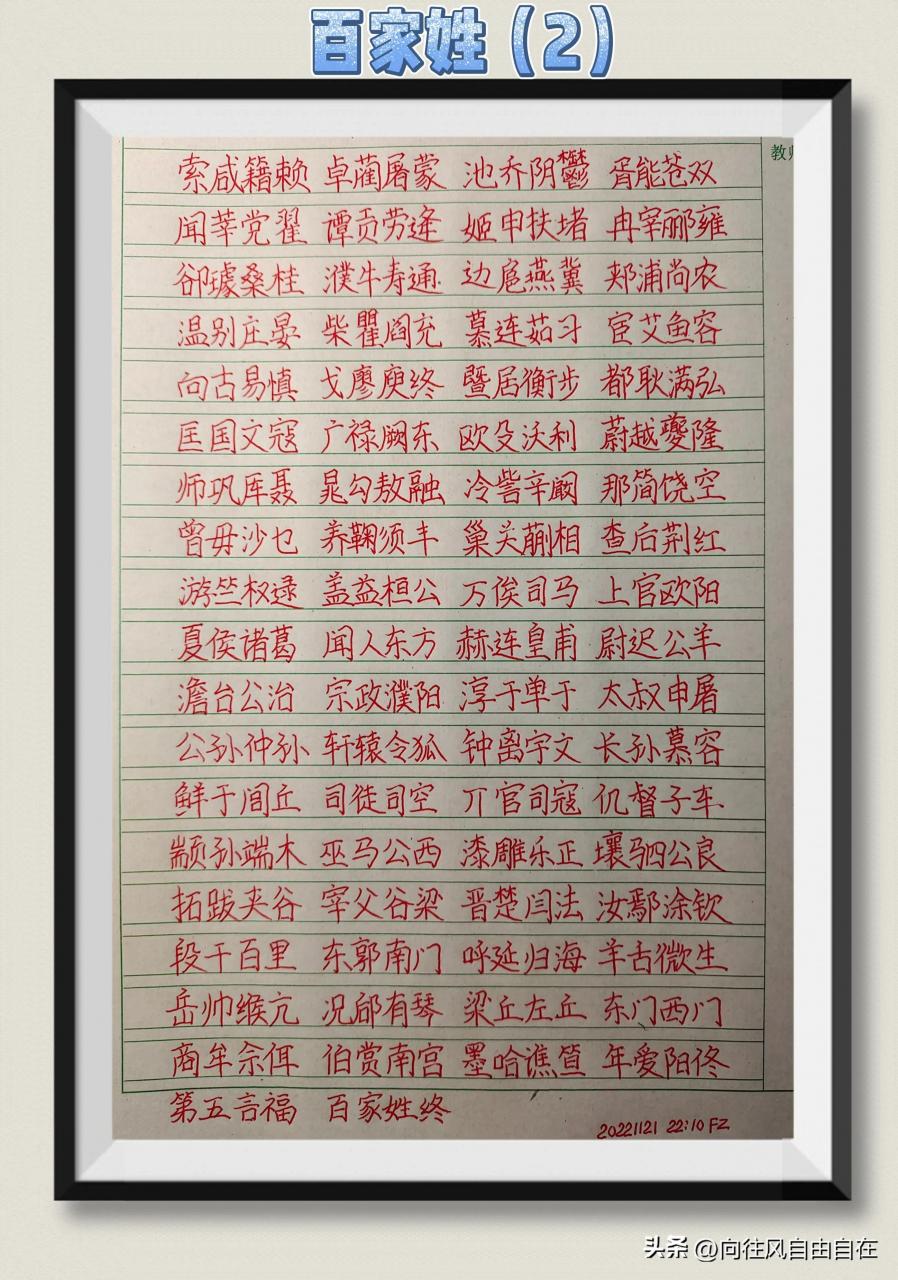 百家姓（2）
教师
索咸籍赖 卓蔺屠蒙 池乔阴鬱 胥能苍双
闻莘党翟 谭贡劳逄 姬申扶堵 冉宰郦雍
郤璩桑桂 濮牛寿通 边扈燕冀 郏浦尚农
温别庄晏 柴瞿阎充 慕连茹习 宦艾鱼容
向古易慎 戈廖庾终 暨居衡步 都耿满弘
匡国文寇 广禄阙东 欧殳沃利 蔚越夔隆
师巩厍聂 晁勾敖融 冷訾辛阚 那简饶空
曾毋沙乜 养鞠须丰 巢关蒯相 查后荆红
游竺权逯 盖益桓公 万俟司马 上官欧阳
夏侯诸葛 闻人东方 赫连皇甫 尉迟公羊
澹台公冶 宗政濮阳 淳于单于 太叔申屠
公孙仲孙 轩辕令狐 钟离宇文 长孙慕容
鲜于闾丘 司徒司空 亓官司寇 仉督子车
颛孙端木 巫马公西 漆雕乐正 壤驷公良
拓跋夹谷 宰父谷梁 晋楚闫法 汝鄢涂钦
段干百里 东郭南门 呼延归海 羊舌微生
岳帅缑亢 况郈有琴 梁丘左丘 东门西门
商牟佘佴 伯赏南宫 墨哈谯笪 年爱阳佟
第五言福 百家姓终
20221121 22:10 FZ
头条 @向往风自由自在